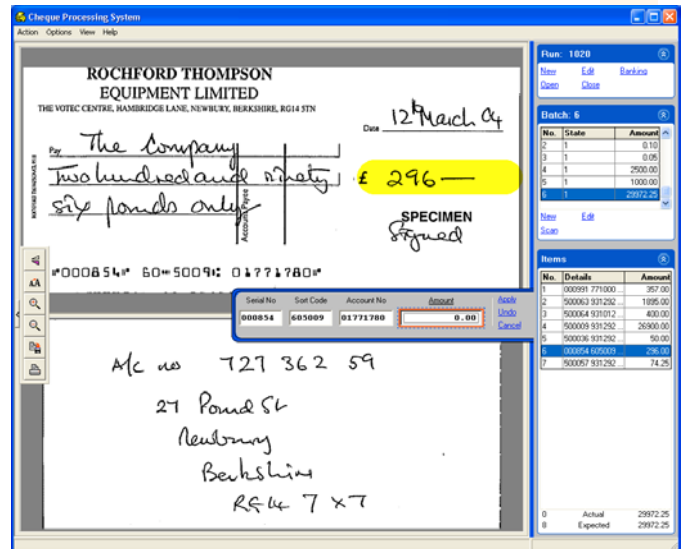 Cheque Processing System
Action Options View Help
ROCHFORD THOMPSON
EQUIPMENT LIMITED
THE VOTEC CENTRE, HAMBRIDGE LANE, NEWBURY, BERKSHIRE, RG14 5TN
Date 12th March 04
Pay The Company
Two hundred and ninety
six pounds only
£ 296—
Account Payee
SPECIMEN
Signed
⑈000854⑈ 60⑉5009⑆ 01771780⑈
Serial No Sort Code Account No Amount
000854 605009 01771780 0.00
Apply
Undo
Cancel
A/c no 727 362 59
27 Pound St
Newbury
Berkshire
RG14 7X7
Run: 1020
New Edit Banking
Open Close
Batch: 6
No. State Amount
2 1 0.10
3 1 0.05
4 1 2500.00
5 1 1000.00
6 1 29972.25
New Edit
Scan
Items
No. Details Amount
1 000991 771000 ... 357.00
2 500063 931292 ... 1895.00
3 500064 931012 ... 400.00
4 500009 931292 ... 26900.00
5 500036 931292 ... 50.00
6 000854 605009 ... 296.00
7 500057 931292 ... 74.25
0 Actual 29972.25
8 Expected 29972.25